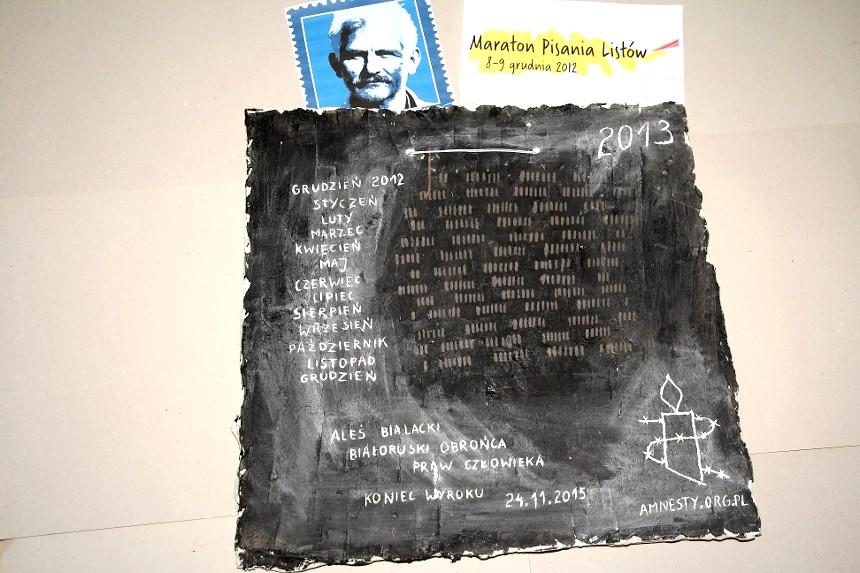 Maraton Pisania Listów
8-9 grudnia 2012
2013
GRUDZIEŃ 2012
STYCZEŃ
LUTY
MARZEC
KWIECIEŃ
MAJ
CZERWIEC
LIPIEC
SIERPIEŃ
WRZESIEŃ
PAŹDZIERNIK
LISTOPAD
GRUDZIEŃ
ALEŚ BIALACKI
BIAŁORUSKI OBROŃCA
PRAW CZŁOWIEKA
KONIEC WYROKU 24.11.2015
AMNESTY.ORG.PL